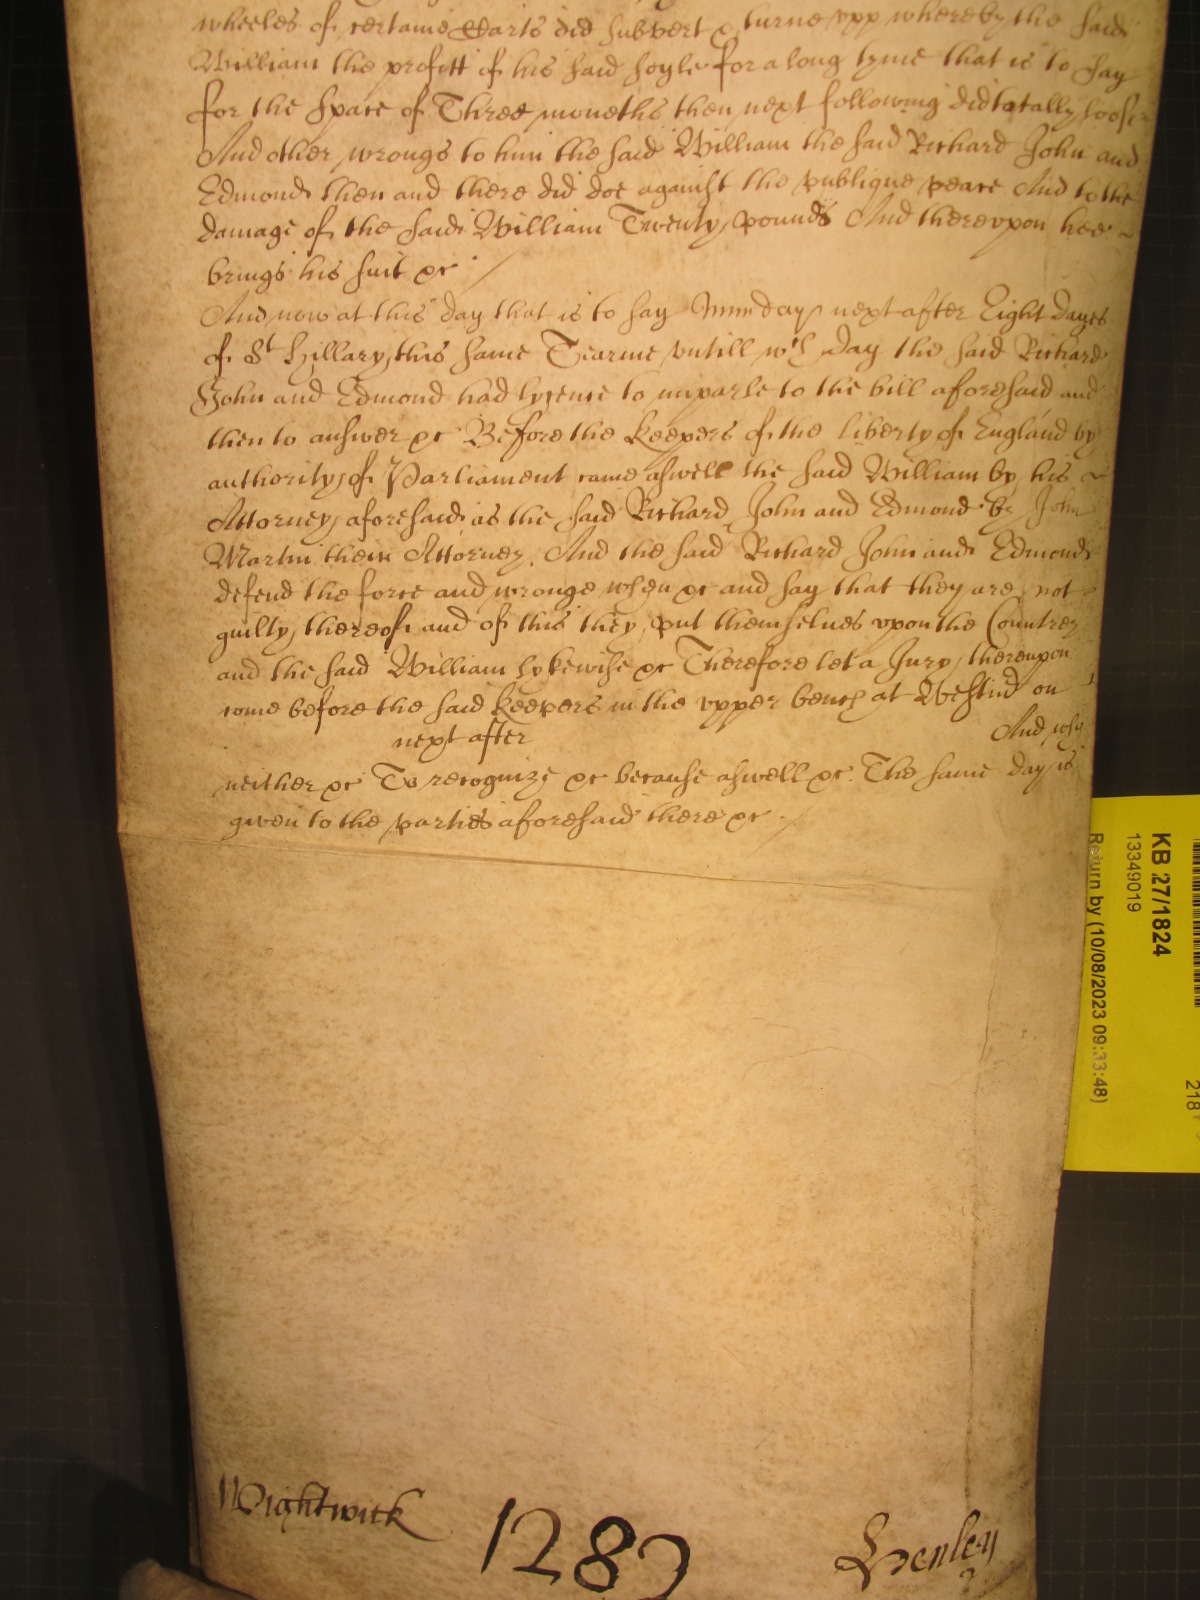 wheeles of certaine Carts did subvert & turne upp whereby the said
William the profitt of his said soyle for a long tyme that is to say
for the space of Three moneths then next following did totally loose
And other wrongs to him the said William the said Richard John and
Edmond then and there did doe against the publique peace And to the
damage of the said William Twenty pounds And thereupon hee
brings his suit &c
And now at this day that is to say Munday next after Eight Dayes
of St Hillary this same Tearme untill wch day the said Richard
John and Edmond had lycence to imparle to the bill aforesaid and
then to answer &c Before the keepers of the liberty of England by
authority of Parliament came aswell the said William by his
Attorney aforesaid as the said Richard John and Edmond by John
Martin their Attorney. And the said Richard John and Edmond
defend the force and wronge when &c and say that they are not
guilty thereof and of this they put themselues upon the Countrey
and the said William lykewise &c Therefore let a Jury thereupon
come before the said keepers in the upper bench at Westmr on
next after And who
neither &c To recognize &c because aswell &c. The same day is
given to the parties aforesaid there &c
Wightwick 1283 Henley
KB 27/1824
13349019
Return by (10/08/2023 09:33:48)
218